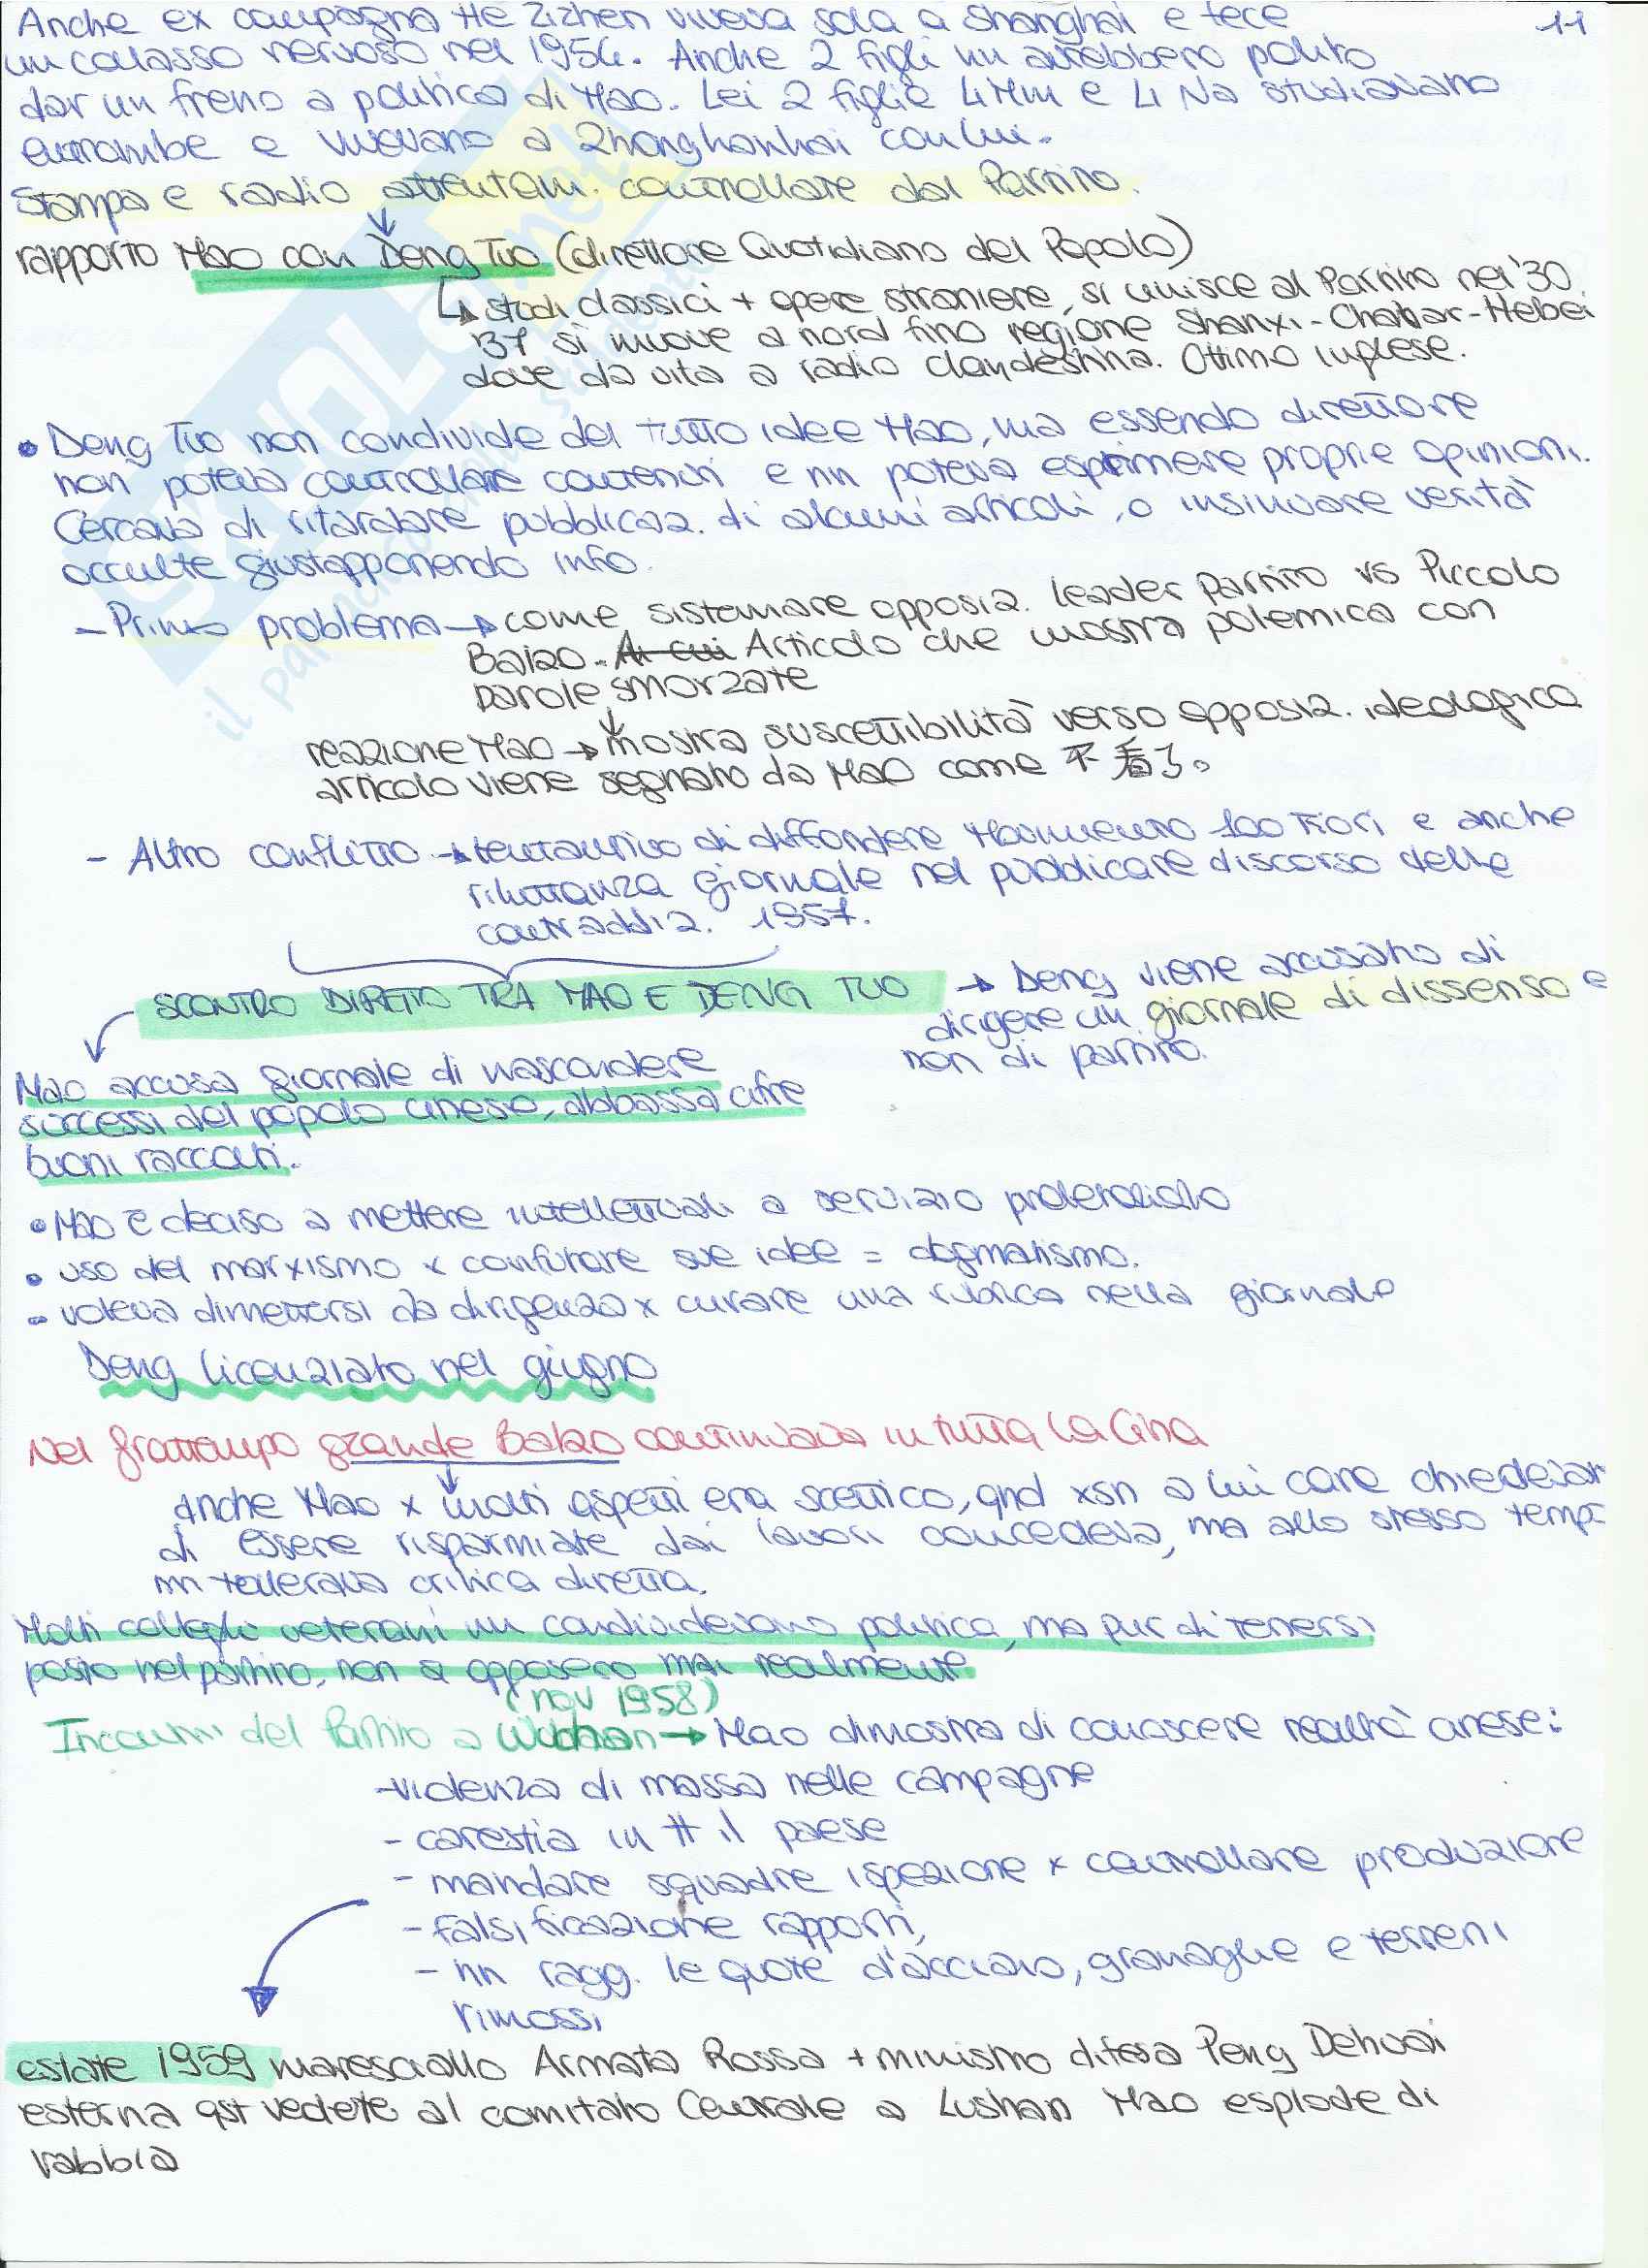 11
Anche ex compagna He Zizhen viveva sola a Shanghai e fece
un collasso nervoso nel 1954. Anche 2 figli nn avrebbero potuto
dar un freno a politica di Mao. Lei 2 figlie Li Min e Li Na studiavano
entrambe e vivevano a Zhonghanhai con lui.
Stampa e radio attentam. controllate dal Partito.
rapporto Mao con Deng Tuo (direttore Quotidiano del Popolo)
↳ studi classici + opere straniere, si unisce al Partito nel '30.
'37 si muove a nord fino regione Shanxi-Chahar-Hebei
dove dà vita a radio clandestina. Ottimo inglese.
• Deng Tuo non condivide del tutto idee Mao, ma essendo direttore
non poteva controllare contenuti e nn poteva esprimere proprie opinioni.
Cercava di ritardare pubblicaz. di alcuni articoli, o insinuare verità
occulte giustapponendo info.
- Primo problema → come sistemare opposiz. leader Partito vs Piccolo
Balzo. Articolo che mostra polemica con
parole smorzate
reazione Mao → mostra suscettibilità verso opposiz. ideologica
articolo viene segnato da Mao come 不看了。
- Altro conflitto → tentativo di diffondere Movimento 100 Fiori e anche
riluttanza giornale nel pubblicare discorso delle
contraddiz. 1957.
SCONTRO DIRETTO TRA MAO E DENG TUO → Deng viene accusato di
dirigere un giornale di dissenso e
non di partito.
Mao accusa giornale di nascondere
successi del popolo cinese, abbassa cifre
buoni raccolti.
• Mao è deciso a mettere intellettuali a servizio proletariato
• uso del marxismo x confutare sue idee = dogmatismo.
• voleva dimettersi da dirigenza x curare una rubrica nella giornale
Deng licenziato nel giugno
Nel frattempo grande Balzo continuava in tutta la Cina
anche Mao x molti aspetti era scettico, qnd xsn a lui care chiedevan
di essere risparmiate dai lavori concedeva, ma allo stesso temp
nn tollerava critica diretta.
Molti colleghi veterani nn condividevano politica, ma pur di tenersi
posto nel partito, non si opposero mai realmente
(nov 1958)
Incontri del Partito a Wuhan → Mao dimostra di conoscere realtà cinese:
- violenza di massa nelle campagne
- carestia in tt il paese
- mandare squadre ispezione x controllare produzione
- falsificazione rapporti,
- nn ragg. le quote d'acciaio, granaglie e terreni
rimossi
estate 1959 maresciallo Armata Rossa + ministro difesa Peng Dehuai
esterna qst vedute al comitato Centrale a Lushan Mao esplode di
rabbia